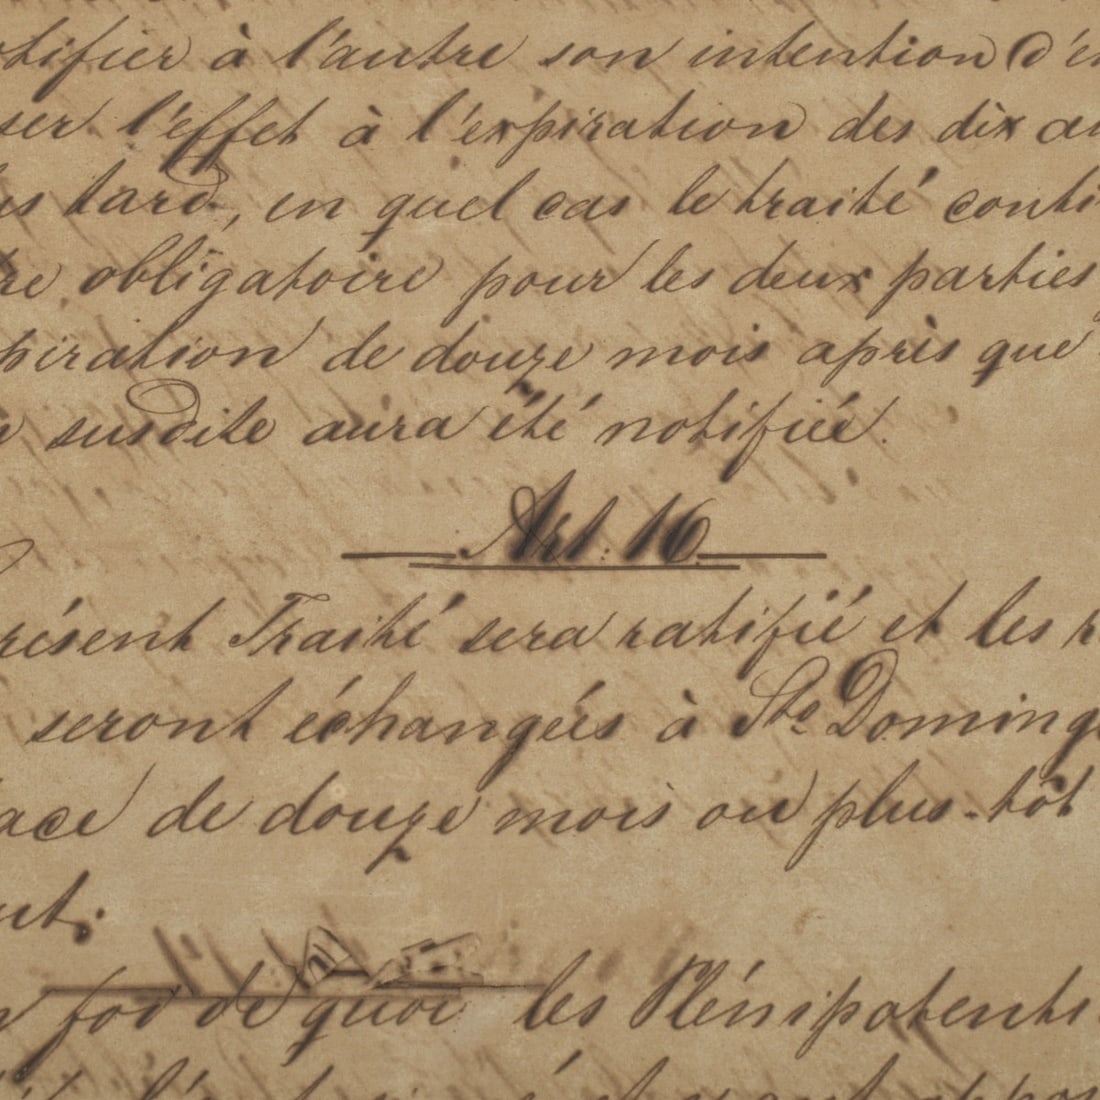 tifier à l'autre son intention d'en
ser l'effet à l'expiration des dix an
us tard, en quel cas le traité conti
re obligatoire pour les deux parties
piration de douze mois après que
susdite aura été notifiée.
Art. 16
résent Traité sera ratifié et les r
seront échangées à Sto Doming
ace de douze mois ou plus-tôt
ut.
foi de quoi les Plénipotenti